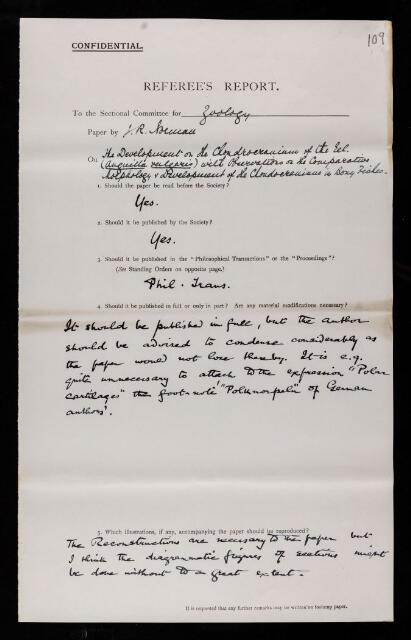 109
CONFIDENTIAL.
REFEREE'S REPORT.
To the Sectional Committee for Zoology
Paper by J. R. Norman
On The Development on the Chondrocranium of the Eel
(Anguilla vulgaris) with Observations on the Comparative
Morphology & Development of the Chondrocranium in Bony Fishes.
1. Should the paper be read before the Society?
Yes.
2. Should it be published by the Society?
Yes.
3. Should it be published in the "Philosophical Transactions" or the "Proceedings"?
(See Standing Orders on opposite page.)
Phil. Trans.
4. Should it be published in full or only in part? Are any material modifications necessary?
It should be published in full, but the author
should be advised to condense considerably as
the paper would not lose thereby. It is e.g.
quite unnecessary to attach to the expression "Polar
cartilages" the foot-note "Polknorpeln" of German
authors'.
5. Which illustrations, if any, accompanying the paper should be reproduced?
The Reconstructions are necessary to the paper but
I think the diagrammatic figures of sections might
be done without to a great extent.
It is requested that any further remarks may be written on foolscap paper.